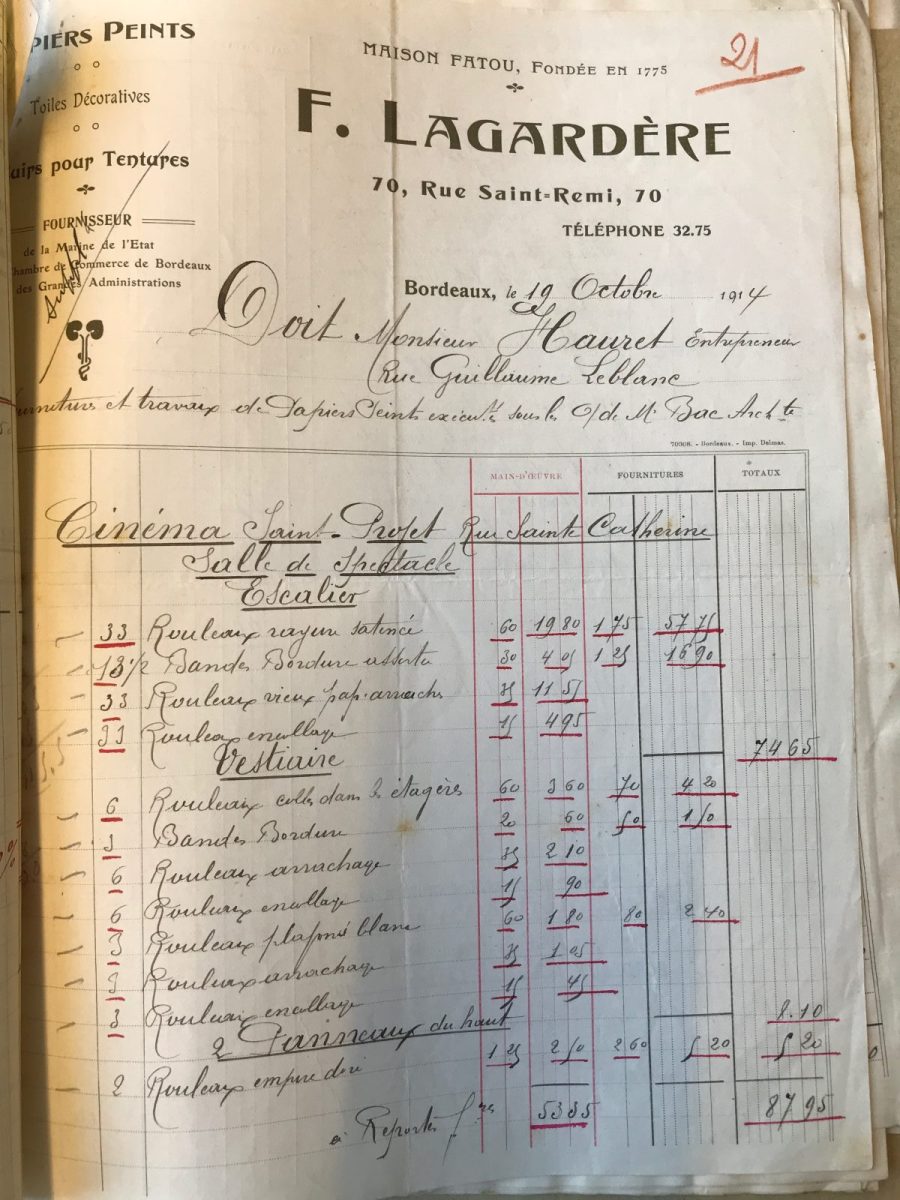 PIERS PEINTS
Toiles Décoratives
uirs pour Tentures
FOURNISSEUR
de la Marine de l'Etat
Chambre de Commerce de Bordeaux
des Grandes Administrations
21
MAISON FATOU, FONDÉE EN 1775
F. LAGARDÈRE
70, Rue Saint-Remi, 70
TÉLÉPHONE 32.75
Bordeaux, le 19 Octobre 1914
Doit Monsieur Hauret Entrepreneur
Rue Guillaume Leblanc
urniture et travaux de Papiers Peints executés sous les O/ de Mr Bac Archte
70308. - Bordeaux. - Imp. Delmas.
MAIN-D'ŒUVRE FOURNITURES TOTAUX
Cinéma Saint-Projet Rue Sainte Catherine
Salle de Spectacle
Escalier
33 Rouleaux rayure satinée 60 19 80 1 75 57 75
13 1/2 Bandes Bordure assortie 30 4 05 1 25 16 90
33 Rouleaux vieux pap. arrachés 35 11 55
33 Rouleaux encollage 15 4 95
74 65
Vestiaire
6 Rouleaux collés dans les étagères 60 3 60 70 4 20
3 Bandes Bordure 20 60 50 1 50
6 Rouleaux arrachage 35 2 10
6 Rouleaux encollage 15 90
3 Rouleaux plafond blanc 60 1 80 80 2 40
3 Rouleaux arrachage 35 1 05
3 Rouleaux encollage 15 45
8.10
2 Panneaux du haut
2 Rouleaux empire doré 1 25 2 50 2 60 5 20 5 20
à Reporter frcs 53 35 87 95